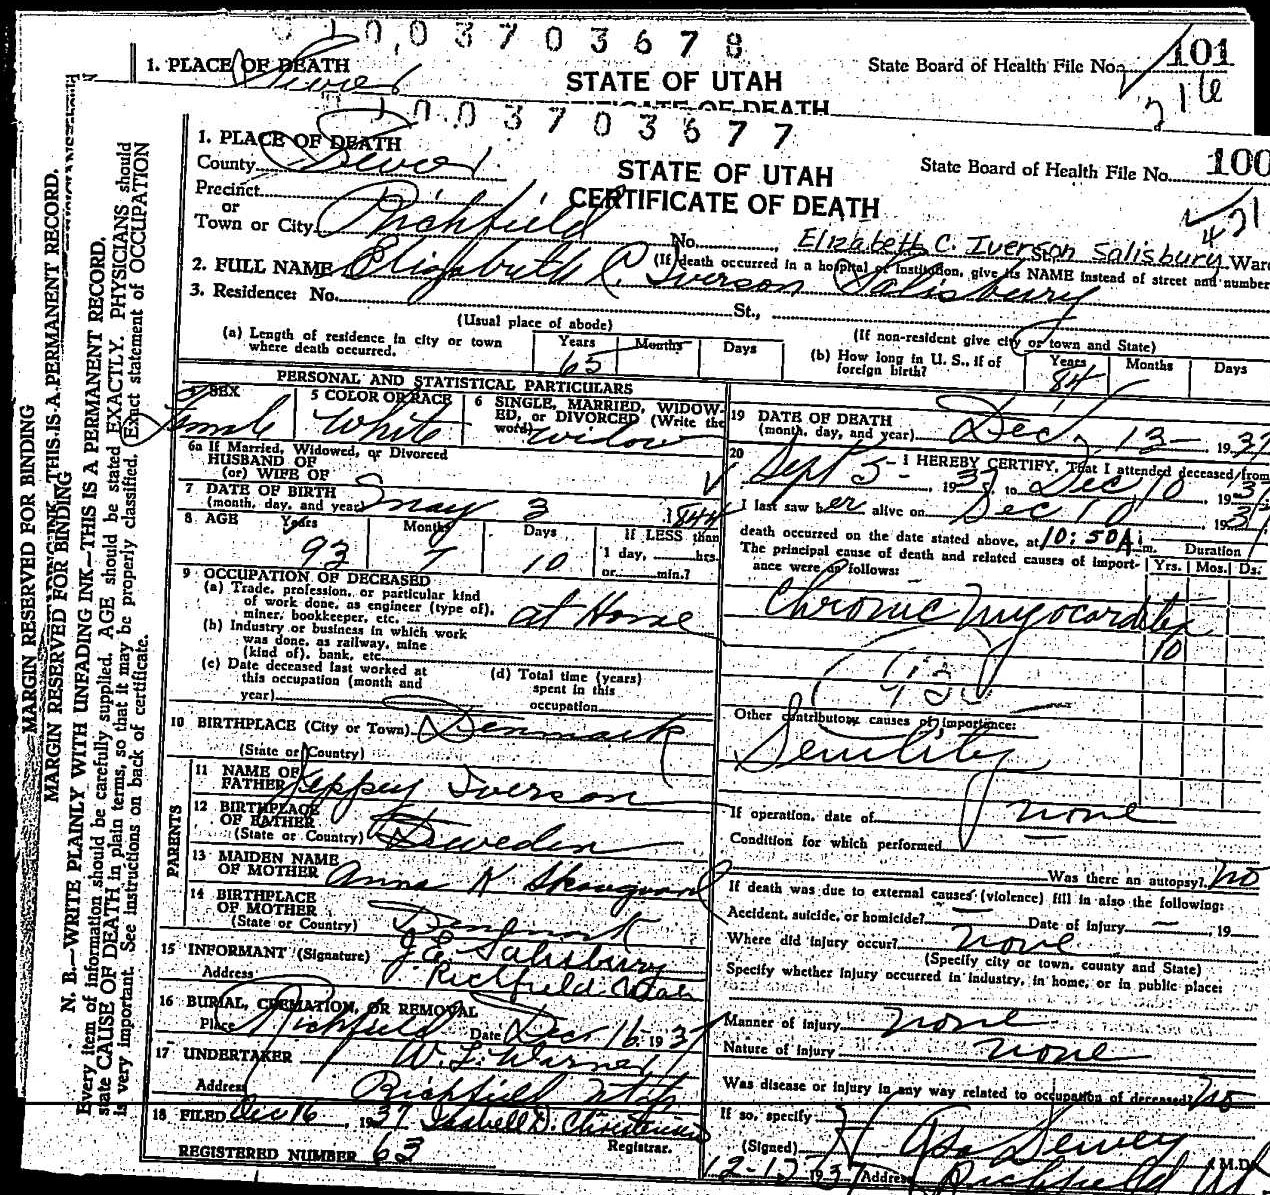 010,03703678
1. PLACE OF DEATH
Sevier
STATE OF UTAH
State Board of Health File No. 101
216
CERTIFICATE OF DEATH
10.03703677
1. PLACE OF DEATH
County Sevier
STATE OF UTAH
CERTIFICATE OF DEATH
State Board of Health File No. 100
Precinct
or
Town or City Richfield
No. , Elizabeth C. Iverson Salisbury Ward
(If death occurred in a hospital or institution, give its NAME instead of street and number
2. FULL NAME Elizabeth C. Iverson Salisbury
3. Residence: No. St.,
(Usual place of abode) (If non-resident give city or town and State)
(a) Length of residence in city or town where death occurred. Years 65 Months Days
(b) How long in U. S., if of foreign birth? Years 84 Months Days
PERSONAL AND STATISTICAL PARTICULARS
SEX Female
5 COLOR OR RACE White
6 SINGLE, MARRIED, WIDOWED, or DIVORCED (Write the word) widow
6a If Married, Widowed, or Divorced
HUSBAND OF
(or) WIFE OF
7 DATE OF BIRTH
(month, day, and year) May 3 1844
8 AGE Years 93 Months 7 Days 10 If LESS than 1 day, hrs. or min.?
9 OCCUPATION OF DECEASED
(a) Trade, profession, or particular kind
of work done, as engineer (type of),
miner, bookkeeper, etc. at Home
(b) Industry or business in which work
was done, as railway, mine
(kind of), bank, etc.
(c) Date deceased last worked at
this occupation (month and
year)
(d) Total time (years)
spent in this
occupation
10 BIRTHPLACE (City or Town) Denmark
(State or Country)
PARENTS
11 NAME OF FATHER Jeppey Iverson
12 BIRTHPLACE OF FATHER
(State or Country) Sweden
13 MAIDEN NAME OF MOTHER Anna K
14 BIRTHPLACE OF MOTHER
(State or Country) Denmark
15 INFORMANT (Signature) J. E. Salisbury
Address Richfield Utah
16 BURIAL, CREMATION, OR REMOVAL
Place Richfield Date Dec. 16 1937
17 UNDERTAKER W. L. Warner
Address Richfield Utah
18 FILED Dec 16, 1937 Isabell D. Christensen
Registrar.
REGISTERED NUMBER 63
19 DATE OF DEATH
(month, day, and year) Dec, 13- 1937
20 I HEREBY CERTIFY, That I attended deceased from
Sept 5-, 193 to Dec 10 193
I last saw her alive on Dec 10 193
death occurred on the date stated above, at 10:50A.m.
The principal cause of death and related causes of importance were as follows:
Duration
Yrs. Mos. Ds.
Chronic Myocarditis
10
Other contributory causes of importance:
Senility
If operation, date of none
Condition for which performed
Was there an autopsy? no
If death was due to external causes (violence) fill in also the following:
Accident, suicide, or homicide? — Date of injury — , 19
Where did injury occur? none
(Specify city or town, county and State)
Specify whether injury occurred in industry, in home, or in public place:
Manner of injury none
Nature of injury none
Was disease or injury in any way related to occupation of deceased? no
If so, specify
(Signed) Dewey M.D.
12-1 1937 Address Richfield Ut
MARGIN RESERVED FOR BINDING
MARGIN RESERVED FOR BINDING
THIS IS A PERMANENT RECORD.
N. B.—WRITE PLAINLY WITH UNFADING INK—THIS IS A PERMANENT RECORD.
Every item of information should be carefully supplied. AGE should be stated EXACTLY. PHYSICIANS should
state CAUSE OF DEATH in plain terms, so that it may be properly classified. Exact statement of OCCUPATION
is very important. See instructions on back of certificate.